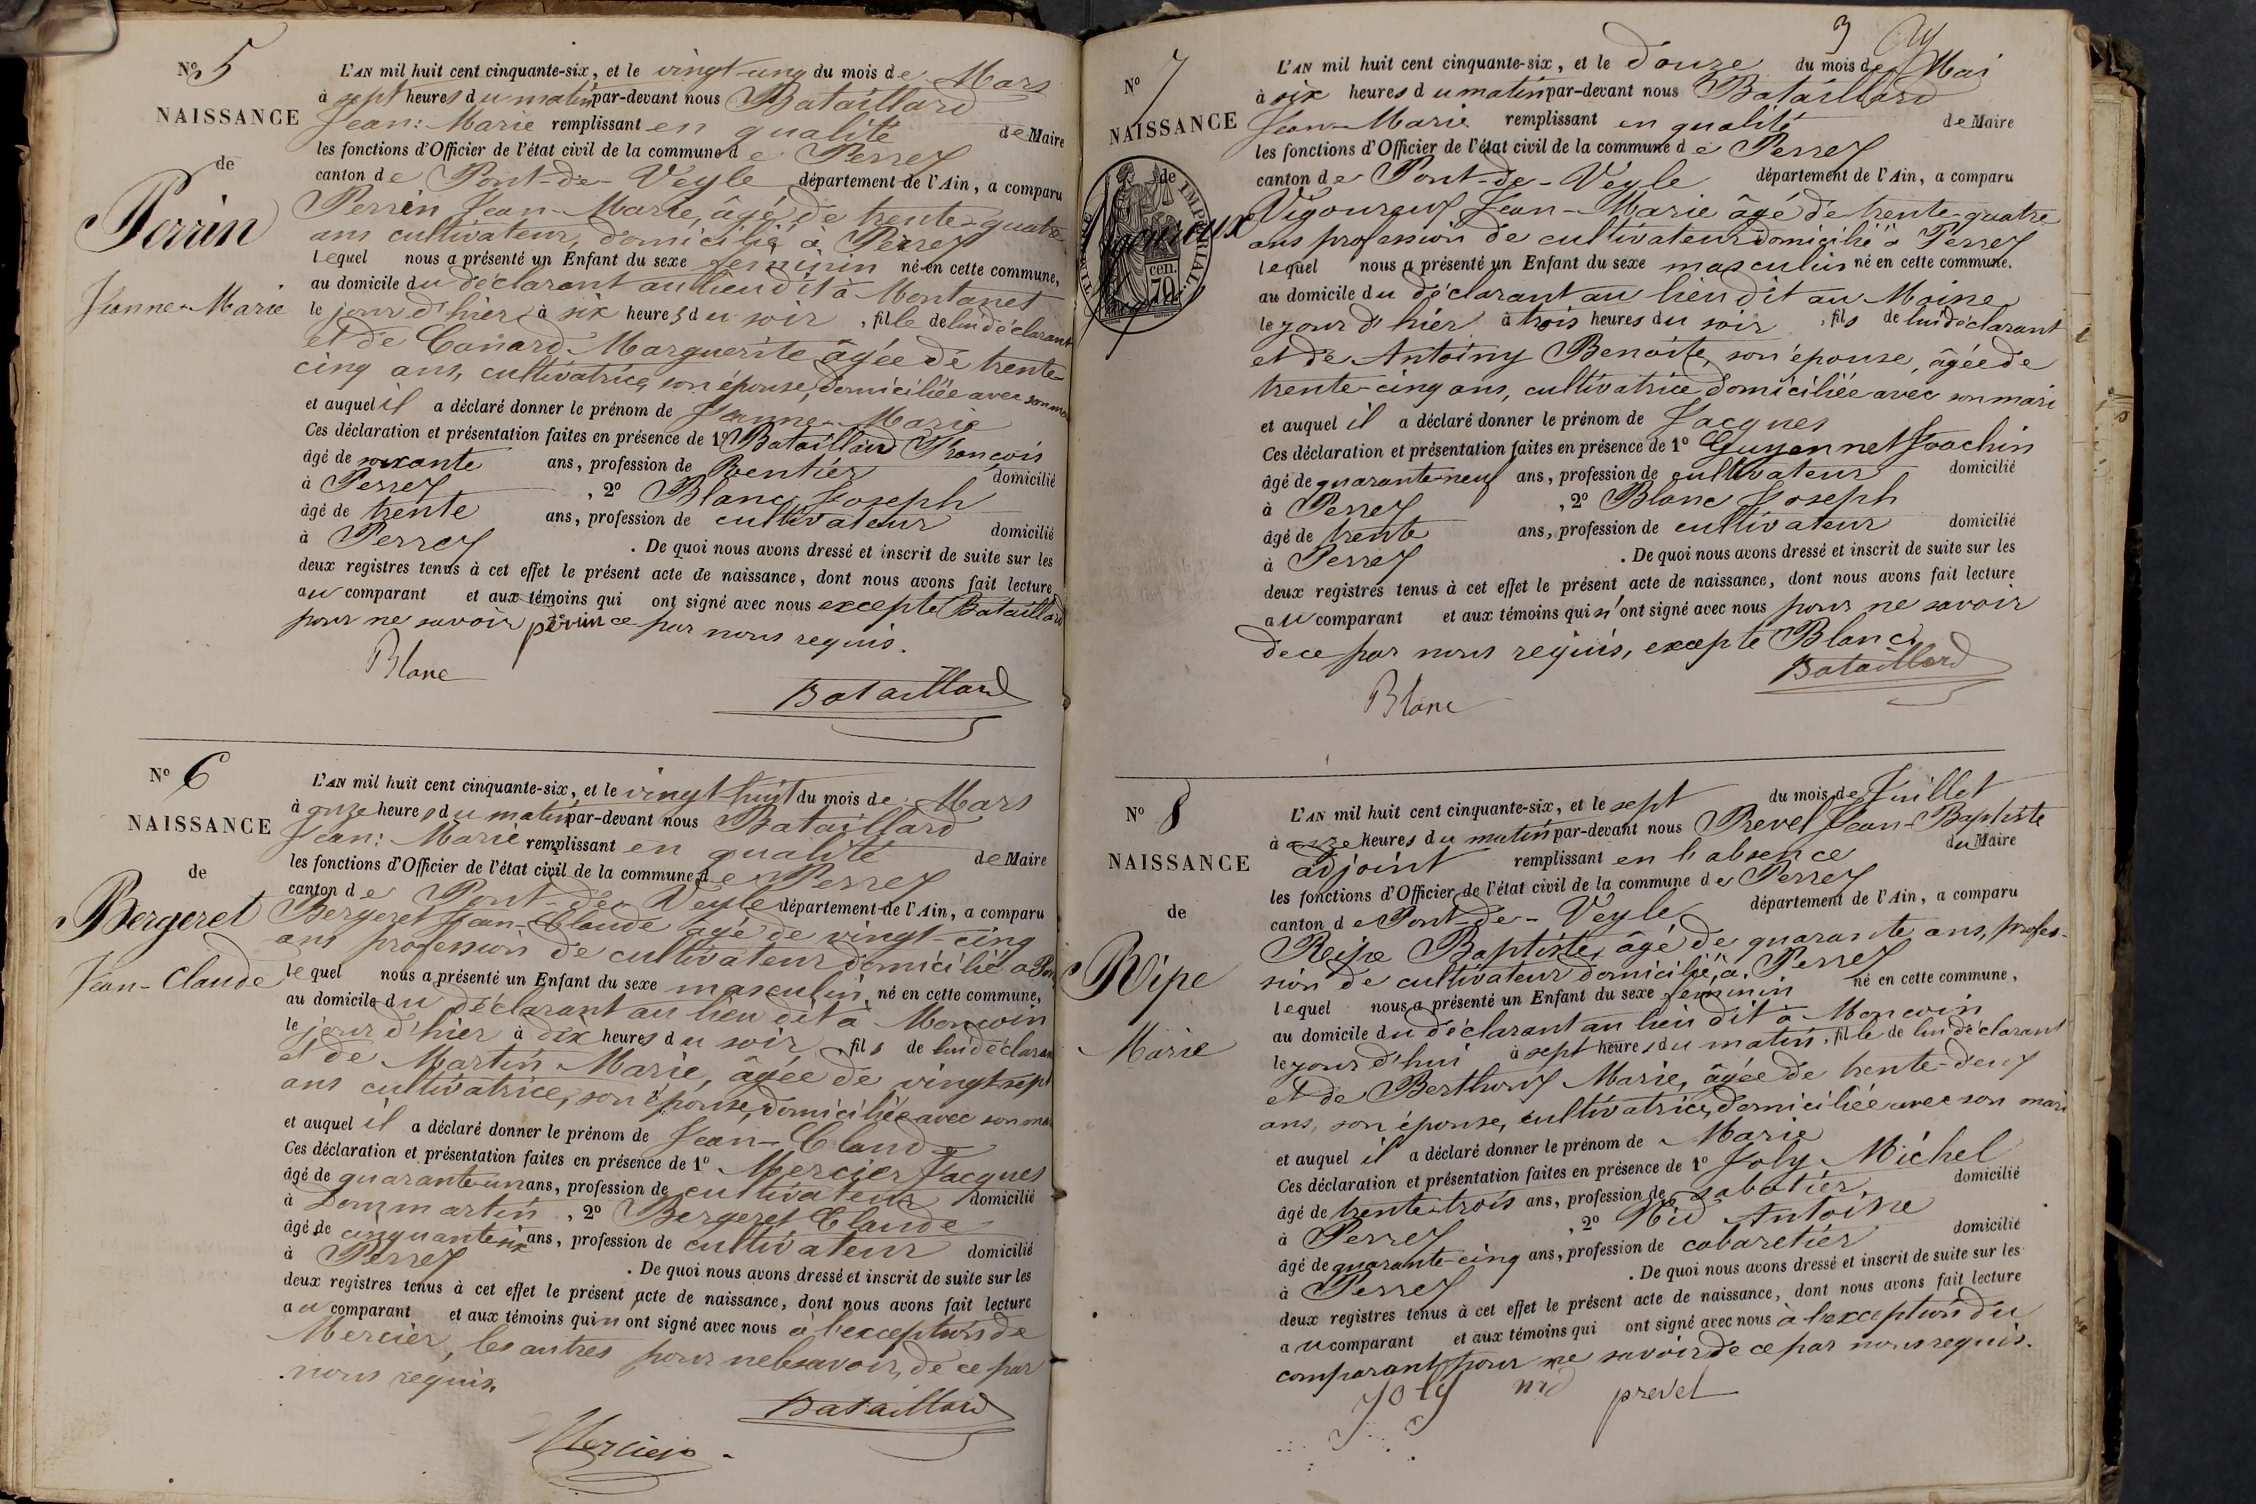 N° 5
NAISSANCE
de
Perrin
Jeanne-Marie
L'AN mil huit cent cinquante-six, et le vingt-ung du mois de Mars
à sept heures du matin par-devant nous Bataillard
Jean-Marie remplissant en qualité de Maire
les fonctions d'Officier de l'état civil de la commune de Perrex
canton de Pont-de-Veyle département de l'Ain, a comparu
Perrin Jean-Marie, âgé de trente-quatre
ans cultivateur, domicilié à Perrex
lequel nous a présenté un Enfant du sexe feminin né en cette commune,
au domicile du déclarant au lieu dit à Montanet
le jour d'hier à six heures du soir, fille de lui déclarant
et de Canard Marguerite âgée de trente-
cinq ans, cultivatrice, son épouse, domiciliée avec son mari
et auquel il a déclaré donner le prénom de Jeanne-Marie
Ces déclaration et présentation faites en présence de 1° Bataillard François
âgé de soixante ans, profession de Rentier domicilié
à Perrex, 2° Blanc Joseph
âgé de trente ans, profession de cultivateur domicilié
à Perrex. De quoi nous avons dressé et inscrit de suite sur les
deux registres tenus à cet effet le présent acte de naissance, dont nous avons fait lecture
au comparant et aux témoins qui ont signé avec nous excepté Bataillard
pour ne savoir de ce par nous requis.
perrin
Blanc
Bataillard
N° 6
NAISSANCE
de
Bergeret
Jean-Claude
L'AN mil huit cent cinquante-six, et le vingt-huit du mois de Mars
à onze heures du matin par-devant nous Bataillard
Jean-Marie remplissant en qualité de Maire
les fonctions d'Officier de l'état civil de la commune de Perrex
canton de Pont-de-Veyle département de l'Ain, a comparu
Bergeret Jean-Claude âgé de vingt-cinq
ans profession de cultivateur domicilié à Perrex
lequel nous a présenté un Enfant du sexe masculin né en cette commune,
au domicile du déclarant au lieu dit à Moncoin
le jour d'hier à dix heures du soir, fils de lui déclarant
et de Martin Marie, âgée de vingt-sept
ans cultivatrice, son épouse, domiciliée avec son mari
et auquel il a déclaré donner le prénom de Jean-Claude
Ces déclaration et présentation faites en présence de 1° Mercier Jacques
âgé de quarante-un ans, profession de cultivateur domicilié
à Dommartin, 2° Bergeret Claude
âgé de cinquante-six ans, profession de cultivateur domicilié
à Perrex. De quoi nous avons dressé et inscrit de suite sur les
deux registres tenus à cet effet le présent acte de naissance, dont nous avons fait lecture
au comparant et aux témoins qui n'ont signé avec nous à l'exception de
Mercier, les autres pour ne le savoir, de ce par
nous requis.
Bataillard
Mercier
3
N° 7
NAISSANCE
de
Vigoureux
Jacques
TIMBRE IMPERIAL
70 cen.
L'AN mil huit cent cinquante-six, et le douze du mois de Mai
à six heures du matin par-devant nous Bataillard
Jean-Marie remplissant en qualité de Maire
les fonctions d'Officier de l'état civil de la commune de Perrex
canton de Pont-de-Veyle département de l'Ain, a comparu
Vigoureux Jean-Marie âgé de trente-quatre
ans profession de cultivateur domicilié à Perrex
lequel nous a présenté un Enfant du sexe masculin né en cette commune.
au domicile du déclarant au lieu dit au Moine
le jour d'hier à trois heures du soir, fils de lui déclarant
et de Antoiny Benoite, son épouse, âgée de
trente-cinq ans, cultivatrice, domiciliée avec son mari
et auquel il a déclaré donner le prénom de Jacques
Ces déclaration et présentation faites en présence de 1° Guyonnet Joachin
âgé de quarante-neuf ans, profession de cultivateur domicilié
à Perrex, 2° Blanc Joseph
âgé de trente ans, profession de cultivateur domicilié
à Perrex. De quoi nous avons dressé et inscrit de suite sur les
deux registres tenus à cet effet le présent acte de naissance, dont nous avons fait lecture
au comparant et aux témoins qui n'ont signé avec nous pour ne savoir
de ce par nous requis, excepté Blanc
Bataillard
Blanc
N° 8
NAISSANCE
de
Ripe
Marie
L'AN mil huit cent cinquante-six, et le sept du mois de Juillet
à onze heures du matin par-devant nous Prevel Jean-Baptiste
adjoint remplissant en l'absence du Maire
les fonctions d'Officier de l'état civil de la commune de Perrex
canton de Pont-de-Veyle département de l'Ain, a comparu
Ripe Baptiste, âgé de quarante ans, profes-
sion de cultivateur domicilié à Perrex
lequel nous a présenté un Enfant du sexe féminin né en cette commune,
au domicile du déclarant au lieu dit à Moncoin
le jour d'hui à sept heures du matin, fille de lui déclarant
et de Berthoux Marie, âgée de trente-deux
ans, son épouse, cultivatrice, domiciliée avec son mari
et auquel il a déclaré donner le prénom de Marie
Ces déclaration et présentation faites en présence de 1° Joly Michel
âgé de trente-trois ans, profession de sabotier domicilié
à Perrex, 2° Nid Antoine
âgé de quarante-cinq ans, profession de cabaretier domicilié
à Perrex. De quoi nous avons dressé et inscrit de suite sur les
deux registres tenus à cet effet le présent acte de naissance, dont nous avons fait lecture
au comparant et aux témoins qui ont signé avec nous à l'exception du
comparant pour ne savoir de ce par nous requis.
Joly nid prevel